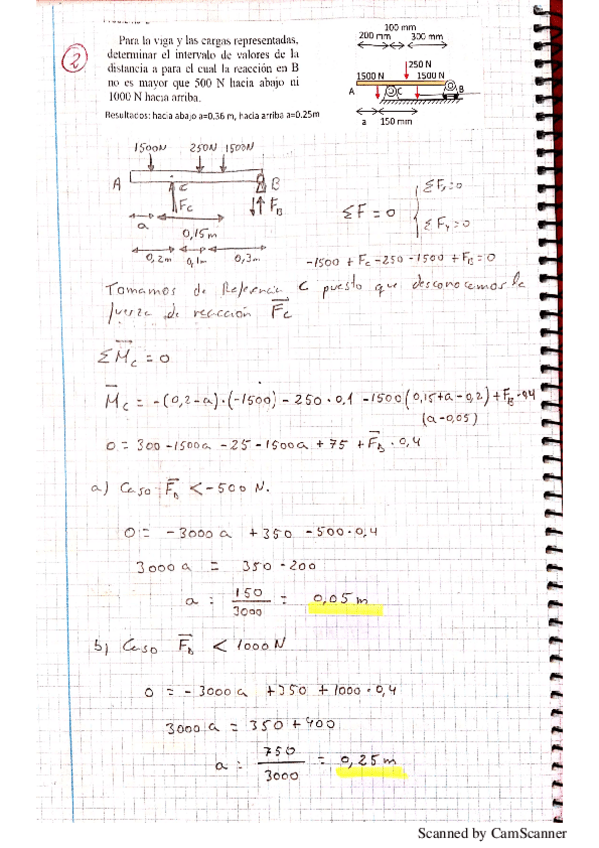 2
Para la viga y las cargas representadas,
determinar el intervalo de valores de la
distancia a para el cual la reacción en B
no es mayor que 500 N hacia abajo ni
1000 N hacia arriba.
Resultados: hacia abajo a=0.36 m, hacia arriba a=0.25m
100 mm
200 mm 300 mm
250 N
1500 N 1500 N
A C B
a 150 mm
1500N 250N 1500N
A C B
Fc FB
a 0,15m
0,2m 0,1m 0,3m
ΣF = 0 { ΣFx = 0
ΣFy = 0
-1500 + Fc - 250 - 1500 + FB = 0
Tomamos de Referencia C puesto que desconocemos la
fuerza de reacción Fc
ΣMc = 0
Mc = -(0,2-a)·(-1500) - 250·0,1 - 1500(0,15+a-0,2) + FB·0,4
(a-0,05)
0 = 300 - 1500a - 25 - 1500a + 75 + FB·0,4
a) Caso FB < -500 N.
0 = -3000a + 350 - 500·0,4
3000a = 350 - 200
a = 150/3000 = 0,05 m
b) Caso FB < 1000 N
0 = -3000a + 350 + 1000·0,4
3000a = 350 + 400
a = 750/3000 = 0,25 m
Scanned by CamScanner